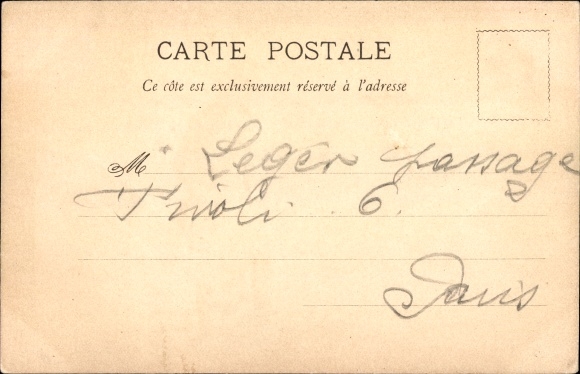 CARTE POSTALE
Ce côte est exclusivement réservé à l'adresse
M Leger passage
Tivoli 6.
Paris